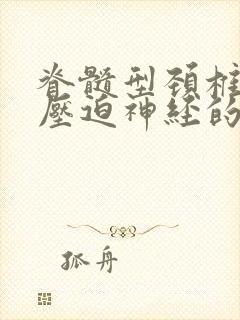 脊髓型颈椎
壓迫神经的
孤舟